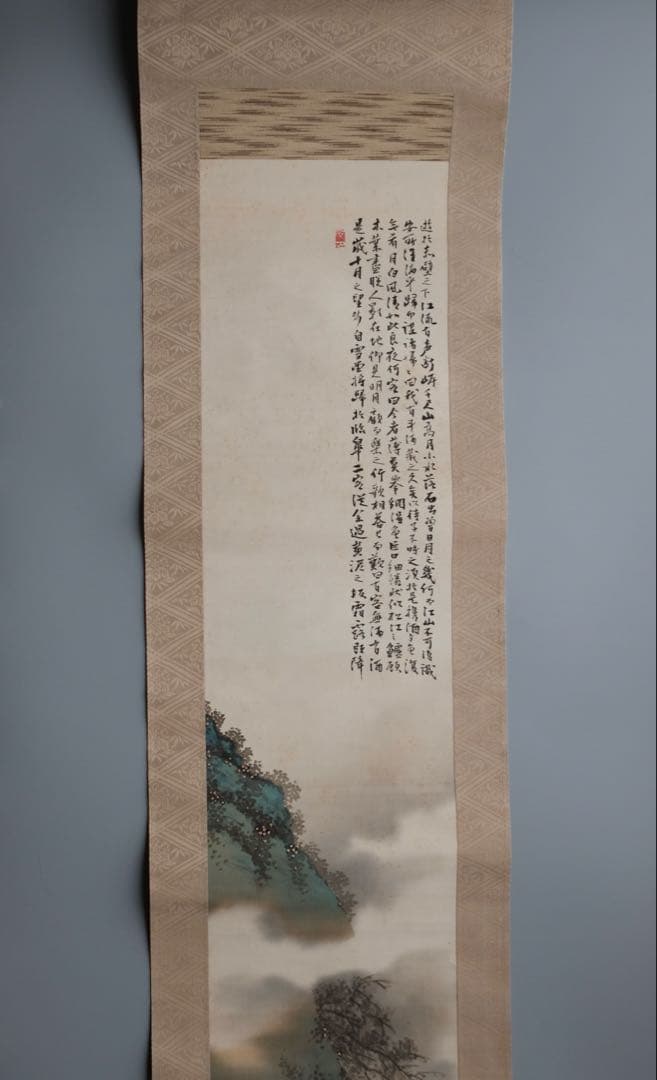 是歲十月之望步自雪堂將歸於臨皋二客從余過黃泥之坂霜露既降
木葉盡脫人影在地仰見明月顧而樂之行歌相答已而歎曰有客無酒有酒
無肴月白風清如此良夜何客曰今者薄暮舉網得魚巨口細鱗狀似松江之鱸顧
安所得酒乎歸而謀諸婦々曰我有斗酒藏之久矣以待子不時之須於是攜酒与魚復
遊於赤壁之下江流有声斷岸千尺山高月小水落石出曾日月之幾何而江山不可復識